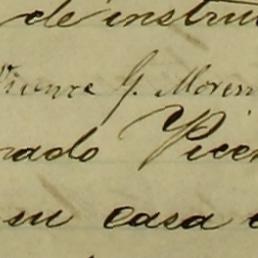 de instru
Vicente G. Moren
rado Vicen
su casa